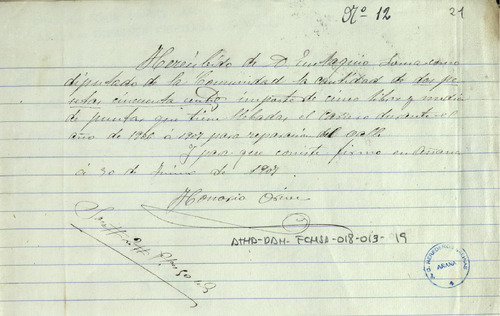 Nº 12
21
He recibido de Dn Eustaquio como
diputado de la Comunidad la cantidad de dos pe
setas cincuenta importe de cinco libras y media
de puntas que tiene llebadas el durante el
año de 1906 á 1907 para reparación del
Y para que conste firmo en Añana
á 30 de Junio de 1907
Honorio
ATHA-DAH-FCMSA-018-013-19
AÑANA